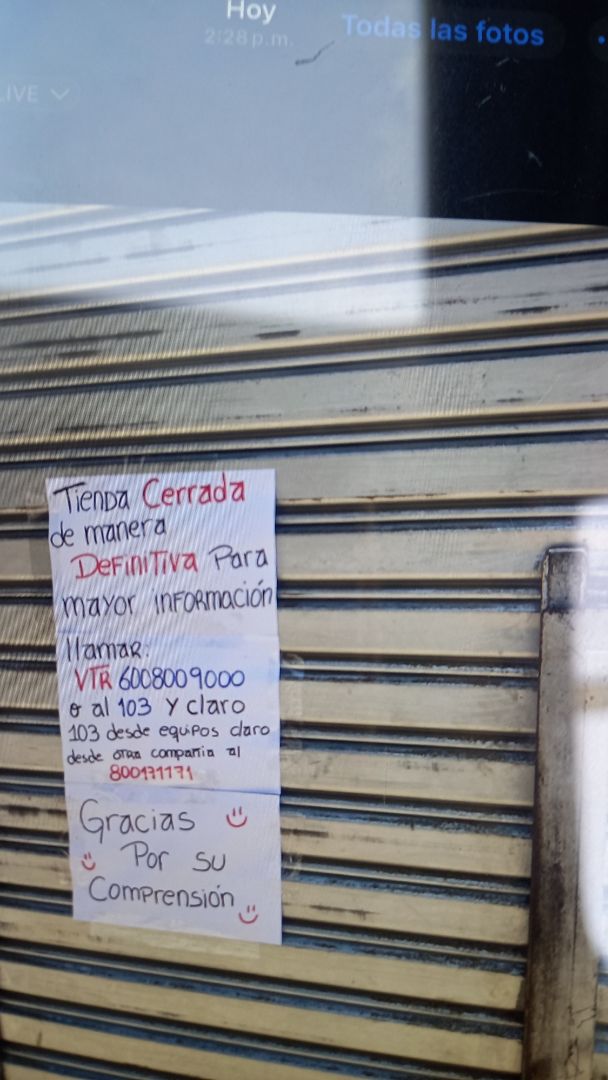 Hoy
2:28 p.m.
Todas las fotos
LIVE
Tienda Cerrada
de manera
Definitiva Para
mayor información
llamar:
VTR 6008009000
o al 103 y claro
103 desde equipos claro
desde otra compañia al
800171171
Gracias
Por su
Comprensión